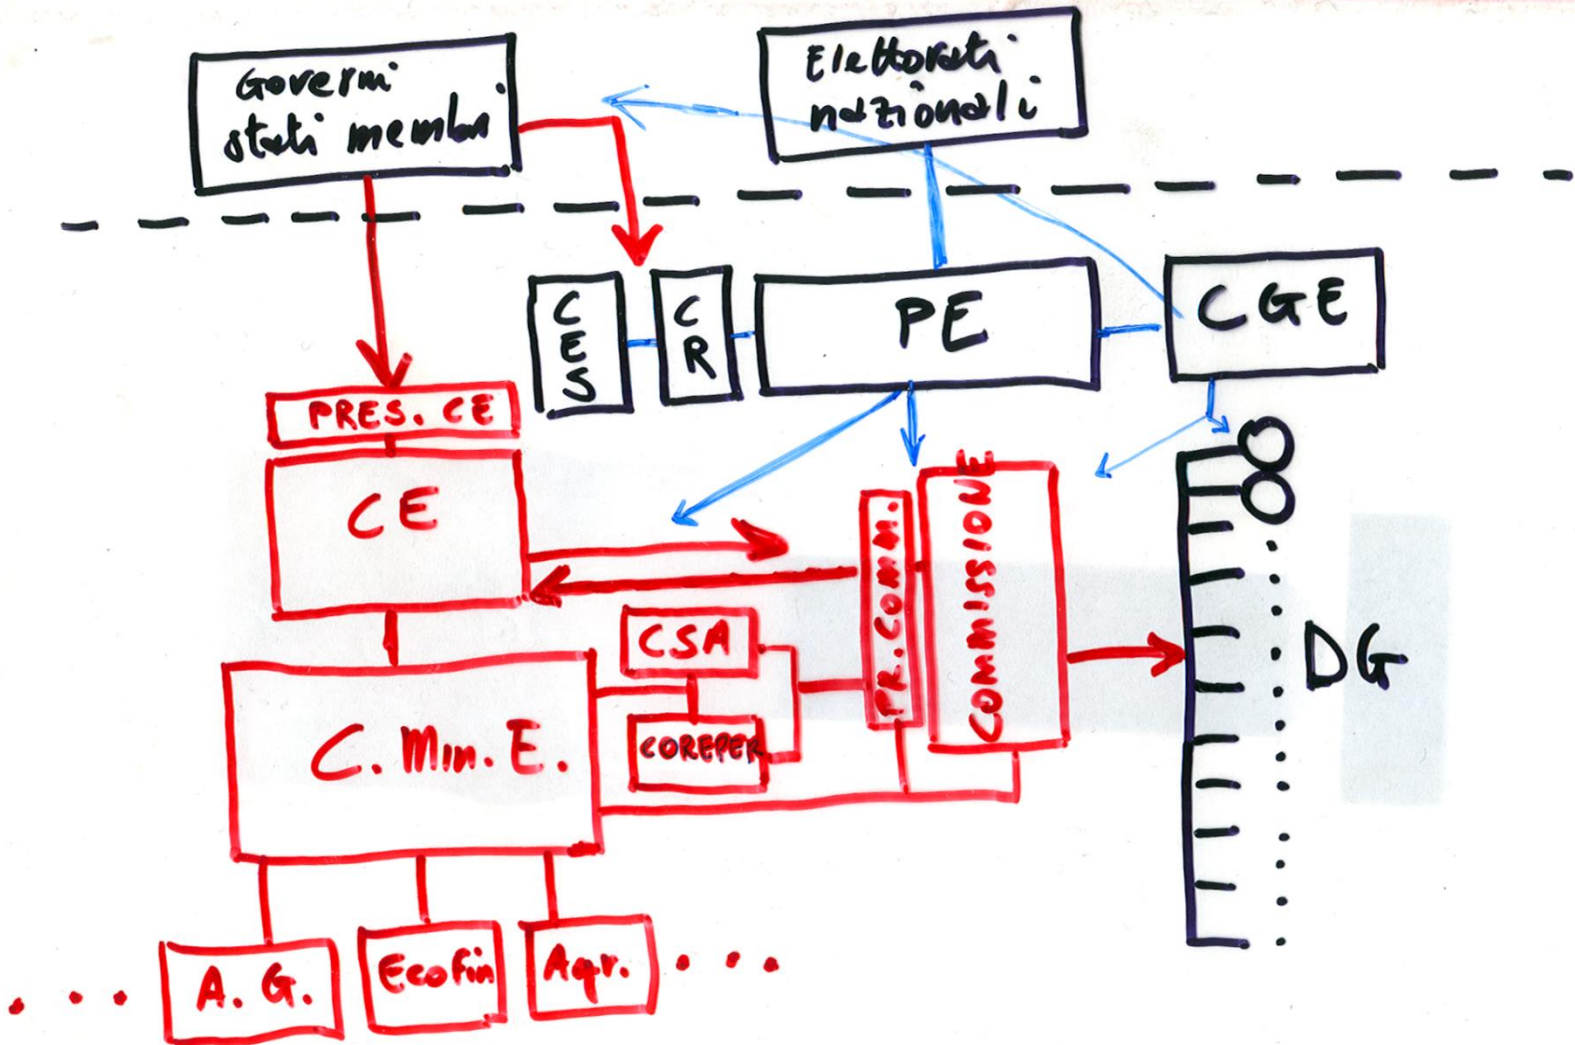 Governi
stati membri
Elettorati
nazionali
CES
CR
PE
CGE
PRES. CE
CE
PR. COMM.
COMMISSIONE
CSA
COREPER
DG
C. Min. E.
A. G.
Ecofin
Agr.